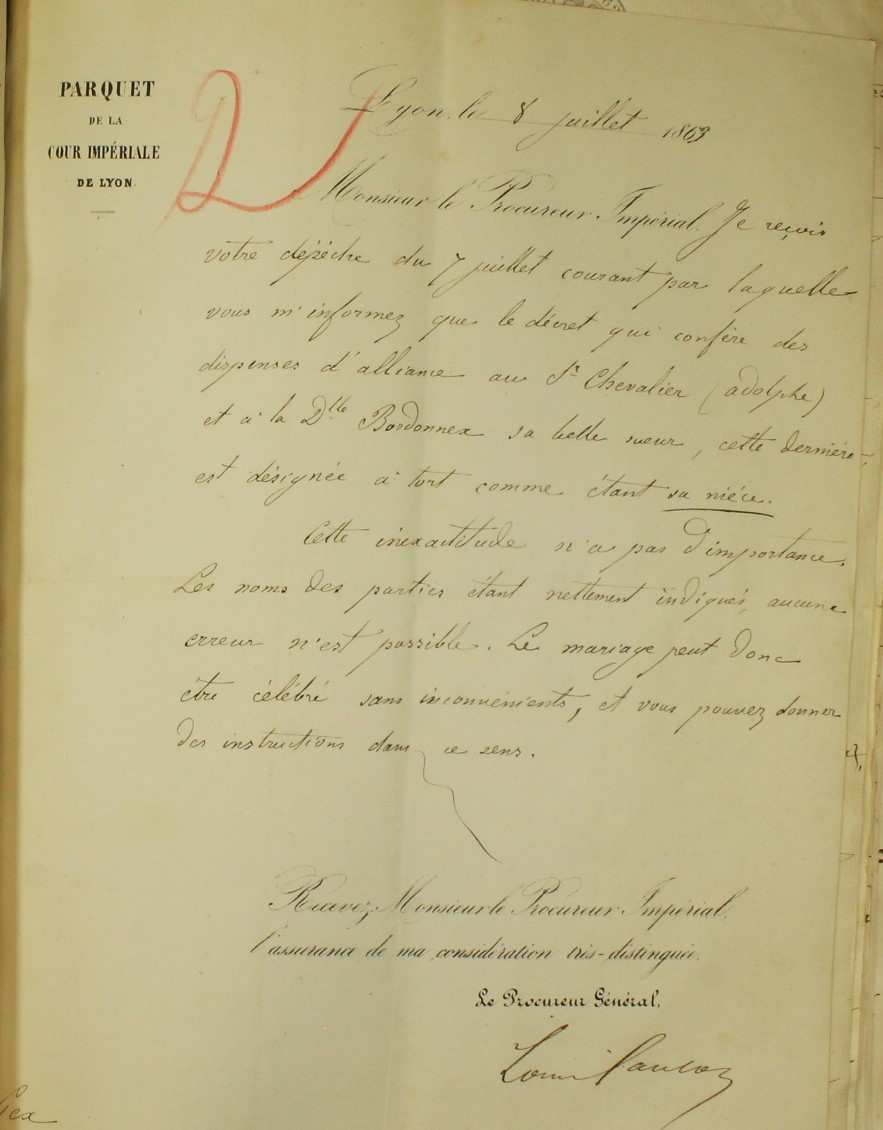 PARQUET
DE LA
COUR IMPÉRIALE
DE LYON
Lyon, le 8 juillet 1863
Monsieur le Procureur Impérial. Je reçois
votre dépêche du 7 juillet courant par laquelle
vous m'informez que le décret qui confère des
dispenses d'alliance au Sr Chevalier (adolphe)
et à la Dlle Bordonnex sa belle sœur, cette dernière
est désignée à tort comme étant sa nièce.
Cette inexactitude n'a pas d'importance.
Les noms des parties étant nettement indiqués, aucune
erreur n'est possible. Le mariage peut donc
être célébré sans inconvénients, et vous pouvez donner
des instructions dans ce sens.
Recevez, Monsieur le Procureur Impérial,
l'assurance de ma considération très-distinguée.
Le Procureur Général,